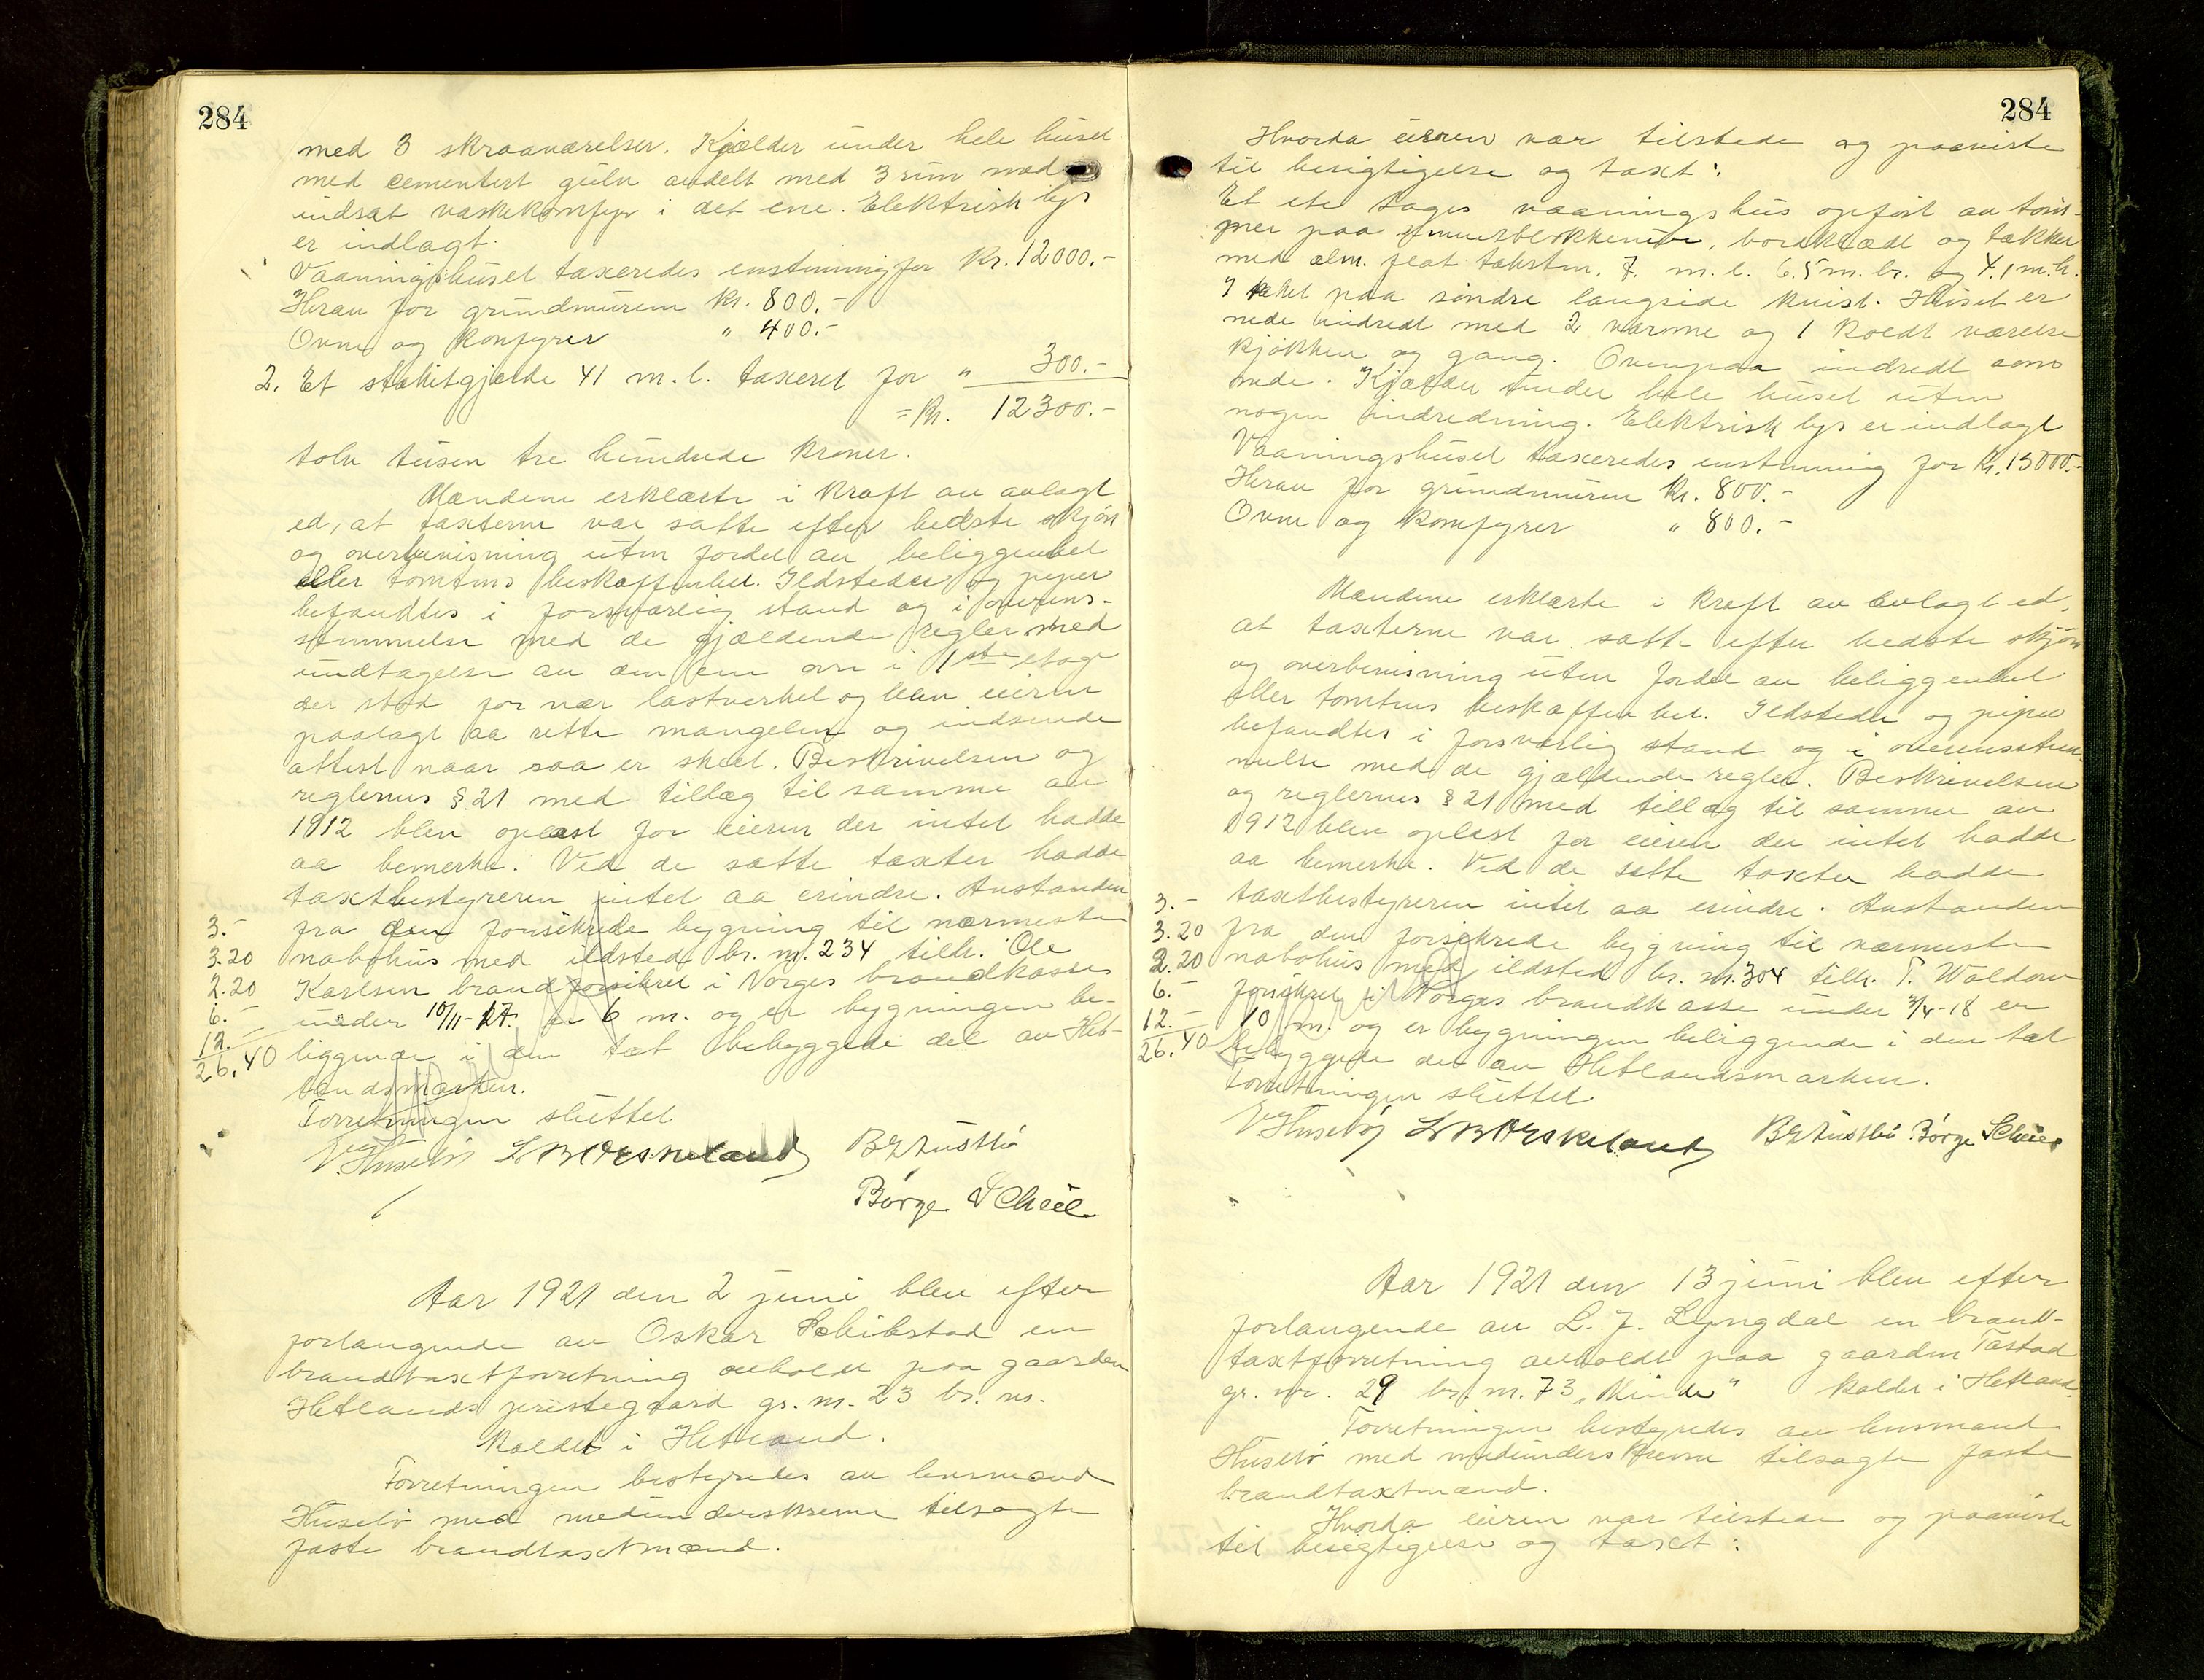 284
med 3 skraaværelser. Kjælder under hele huset
med cementert gulv avdelt med 3 rum med
indsat vaskekomfyr i det ene. Elektrisk lys
er indlagt.
Vaaningshuset taxeredes enstemmig for Kr. 12000.-
Herav for grundmuren Kr. 800.-
Ovne og komfyrer " 400.-
2. Et stakitgjærde 41 m. l. taxeret for " 300.-
= Kr. 12300.-
tolv tusen tre hundrede kroner.
Mændene erklærte i kraft av avlagt
ed, at taxterne var satte efter bedste skjøn
og overbevisning uten fordel av beliggenhet
eller tomtens beskaffenhet. Ildsteder og piper
befandtes i forsvarlig stand og i overens-
stemmelse med de gjældende regler med
undtagelse av den ene ovn i 1ste etage
der stod for nær lastverket og blev eieren
paalagt aa rette mangelen og indsende
attest naar saa er skeet. Beskrivelsen og
reglernes § 21 med tillæg til samme av
1912 blev oplæst for eieren der intet hadde
aa bemerke. Ved de satte taxter hadde
taxtbestyreren intet aa erindre. Avstanden
3.- fra den forsikrede bygning til nærmeste
3.20 nabohus med ildsted br. nr. 234 tilh. Ole
2.20 Karlsen brandforsikret i Norges brandkasse
6.- under 10/11-17. er 6 m. og er bygningen be-
12.- liggende i den tæt bebyggede del av Het-
26.40 landsmarken.
Forretningen sluttet
V. Husebø L B Orskeland B E Austbø
Børge Scheie
Aar 1921 den 2 juni blev efter
forlangende av Oskar Schibstad en
brandtaxtforretning avholdt paa gaarden
Hetlands prestegaard gr. nr. 23 br. nr.
kaldet i Hetland.
Forretningen bestyredes av lensmand
Husebø med medunderskrevne tilsagte
faste brandtaxtmænd.
284
Hvorda eieren var tilstede og paaviste
til besigtigelse og taxt:
Et etc tages vaaningshus opført av tøm-
mer paa smuerblokkemur, bordklædt og tækket
med alm. flat taksten. 7. m. l. 6.5 m. br. og 4.1 m. h.
I taket paa søndre langside kvist. Huset er
nede indredt med 2 varme og 1 koldt værelse
kjøkken og gang. Ovenpaa indredt som
nede. Kjælder under hele huset uten
nogen indredning. Elektrisk lys er indlagt
Vaaningshuset taxeredes enstemmig for Kr. 15000.-
Herav for grundmuren Kr. 800.-
Ovne og komfyrer " 800.-
Mændene erklærte i kraft av avlagt ed,
at taxterne var satte efter bedste skjøn
og overbevisning uten fordel av beliggenhet
eller tomtens beskaffenhet. Ildsteder og piper
befandtes i forsvarlig stand og i overensstem-
melse med de gjældende regler. Beskrivelsen
og reglernes § 21 med tillæg til samme av
1912 blev oplæst for eieren der intet hadde
aa bemerke. Ved de satte taxter hadde
3.- taxtbestyreren intet aa erindre. Avstanden
3.20 fra den forsikrede bygning til nærmeste
2.20 nabohus med ildsted br. nr. 304 tilh. T. Waldow
6.- forsikret i Norges brandkasse under 3/4-18 er
12.- 10 m. og er bygningen beliggende i den tæt
26.40 bebyggede del av Hetlandsmarken.
Forretningen sluttet.
V. Husebø L B Orskeland B E Austbø Børge Scheie
Aar 1921 den 13 juni blev efter
forlangende av L. J. Lyngdal en brand-
taxtforretning avholdt paa gaarden Tastad
gr. nr. 29 br. nr. 73 „Minde" kaldet i Hetland.
Forretningen bestyredes av lensmand
Husebø med medunderskrevne tilsagte faste
brandtaxtmænd.
Hvorda eieren var tilstede og paaviste
til besigtigelse og taxt: